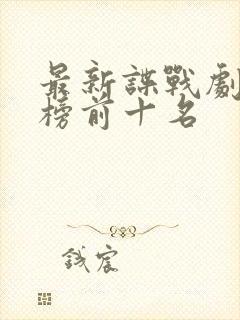 最新諜戰劇
榜前十名
錢宸